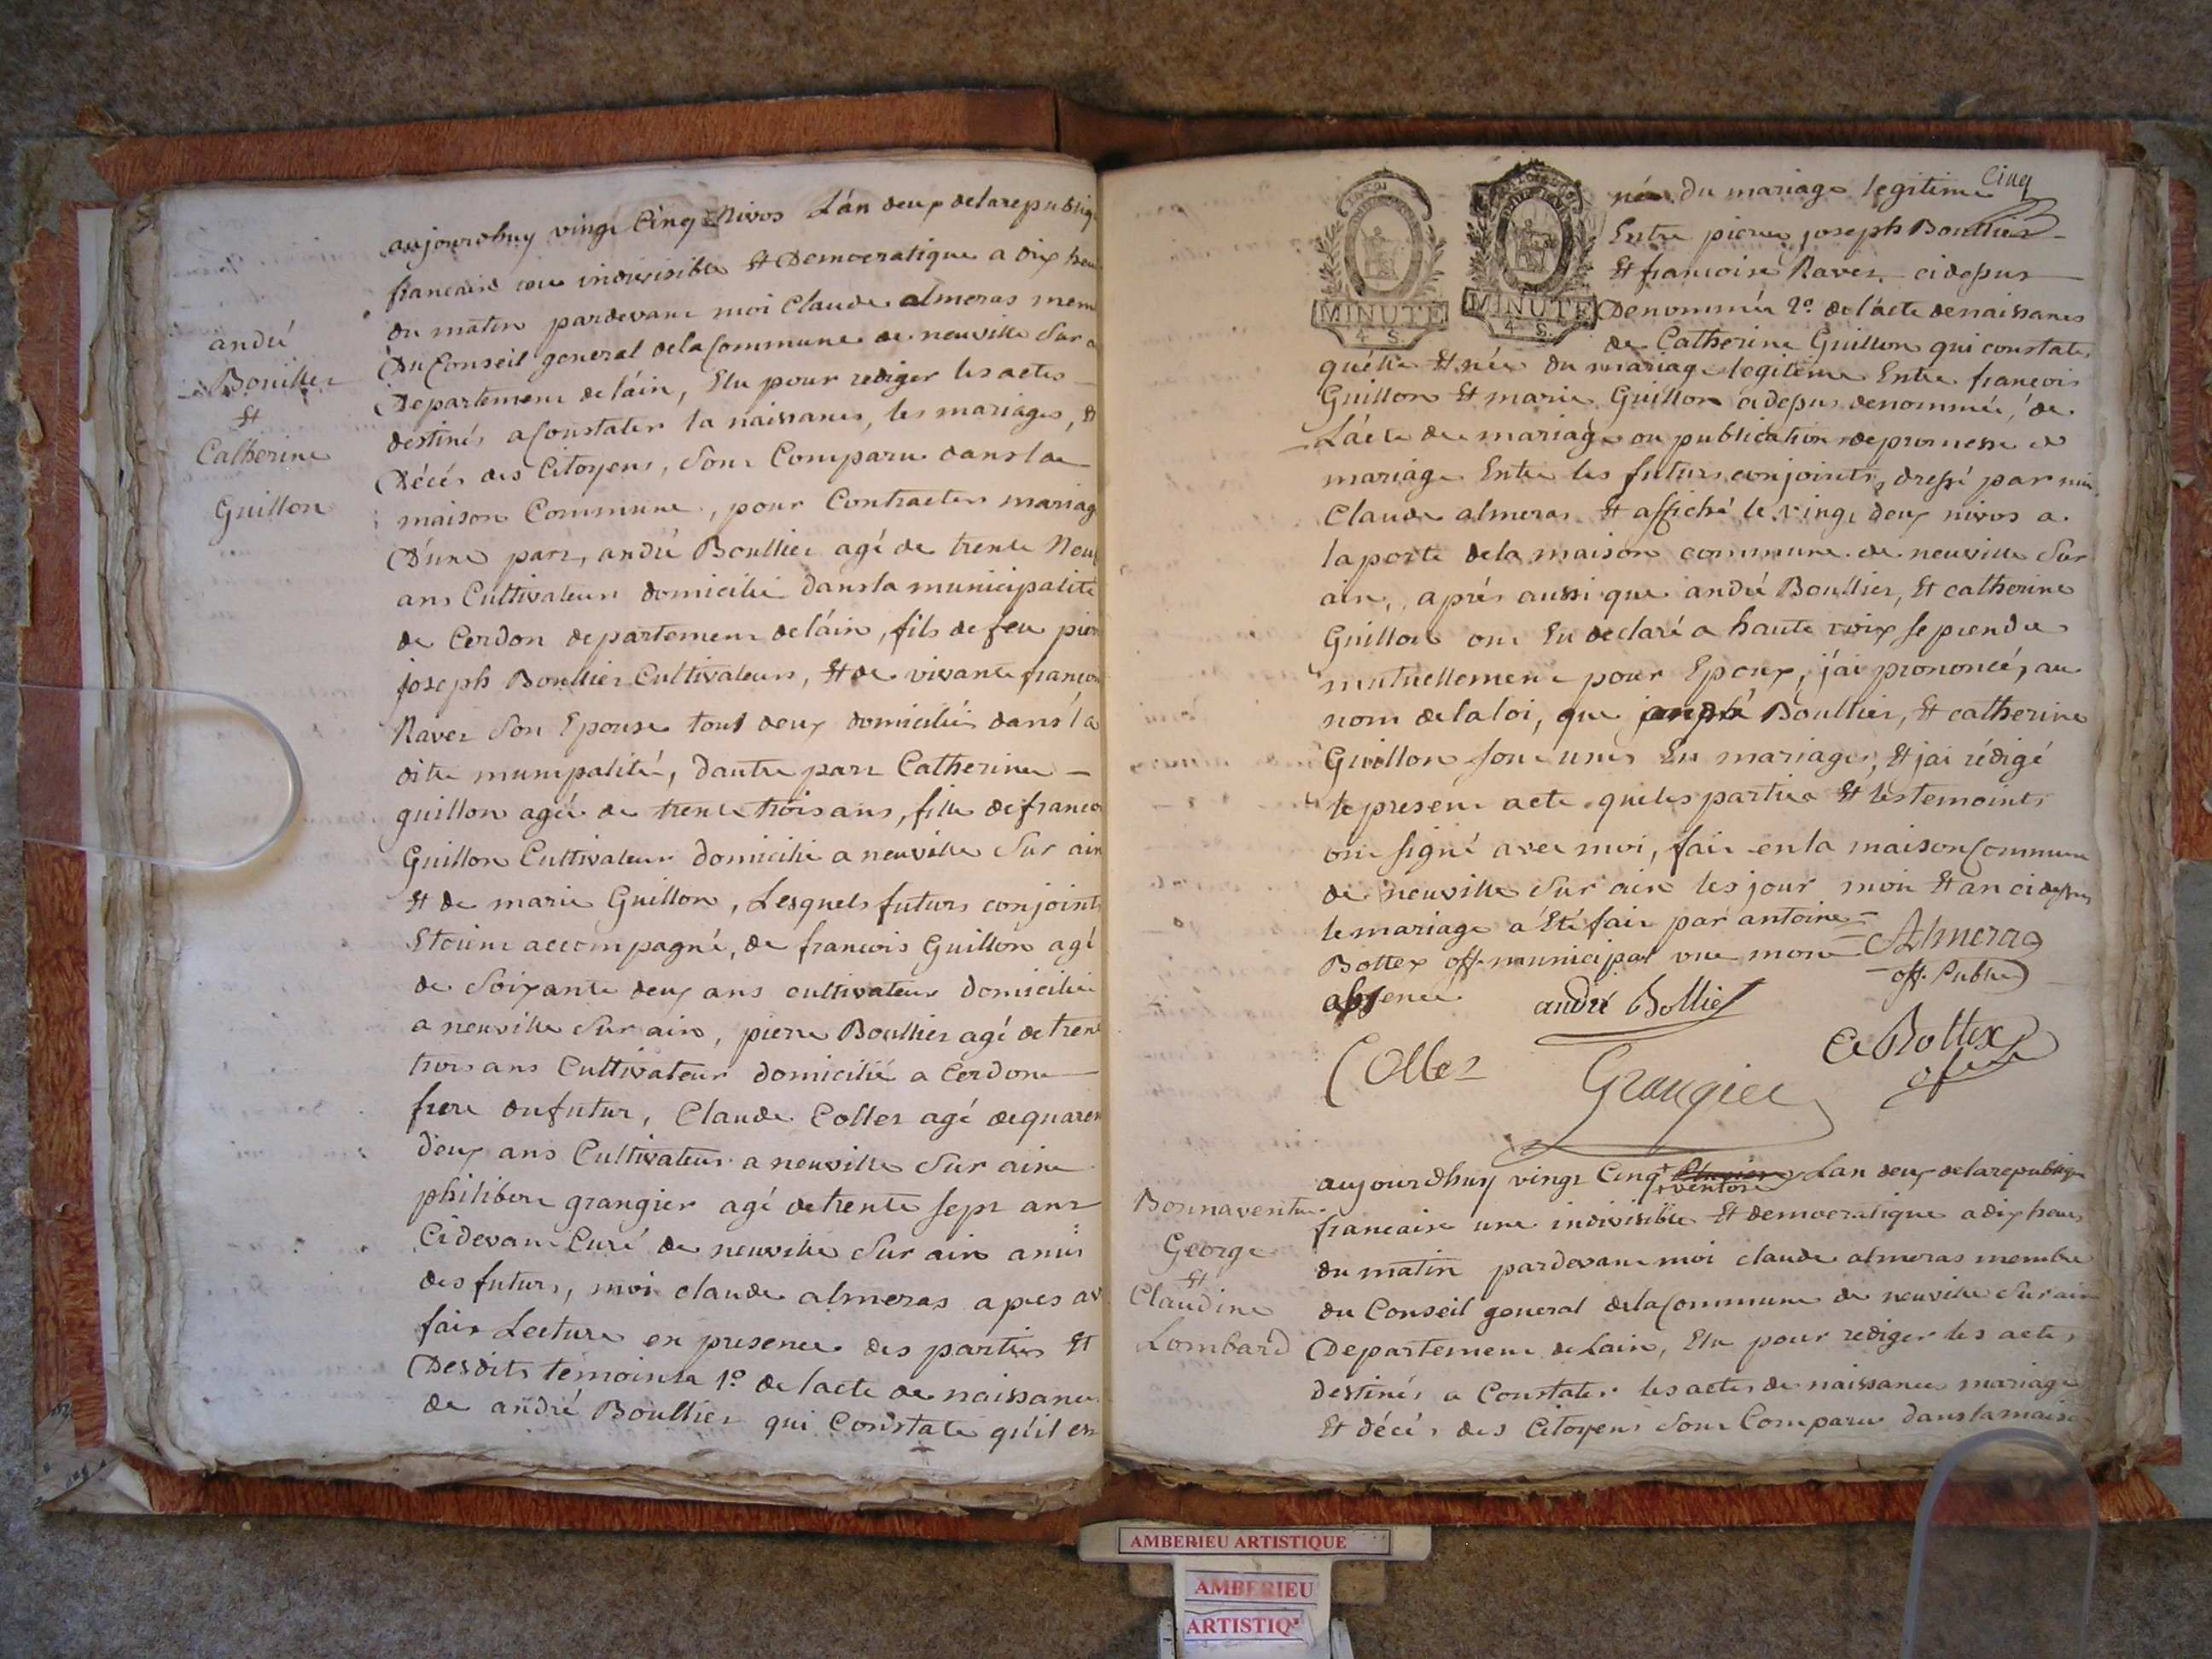 andré
Bouillier
Et
Catherine
Guillon
aujourdhuy vingt Cinq Nivos Lán deux delarepubliq
francaise une indivisible Et Democratique a dix heu
du matin pardevant moi Claude almeras mem
Du Conseil general dela Commune de neuville Sur a
Departement deláin, Elu pour rediger les actes
destinés a Constater la naissances, les mariages, &
Décés des Citoyens, Sont Comparu dans la
maison Commune, pour Contracter mariag
D'une part, andré Boullier agé de trente Neuf
ans Cultivateur domicilié dans la municipalité
de Cerdon departement deláin, fils de feu pier
joseph Boullier Cultivateur, Et de vivante francoi
Raver Son Epouse tout deux domicilié dans la
dite munipalité, dautre part Catherine
guillon agée de trente trois ans, fille de franco
Guillon Cultivateur domicilié a neuville Sur ain
Et de marie Guillon, Lesquels futurs conjoints
Etoient accompagné, de francois Guillon agé
de Soixante deux ans cultivateur domicilié
a neuville Sur ain, pierre Boullier agé de tren
trois ans Cultivateur domicilié a Cerdon
frere du futur, Claude Collet agé de quaren
deux ans Cultivateur a neuville Sur ain
philibert grangier agé de trente sept ans
Cidevant Curé de neuville Sur ain amis
des futurs, moi claude almeras apres av
fait Lecture en presence des parties Et
Desdits temoints 1º de lacte de naissance
de andré Boullier qui Constate qu'il est
Cinq
MINUTE
4 S.
MINUTE
4 S.
née du mariage legitime
Entre pierre joseph Boullier
Et francoise Raver cidepus
Denommée 2º de lácte de naissance
de Catherine Guillon qui constate
quélle Et née du mariage legitime Entre francois
Guillon Et marie Guillon cidepus denommée, de
Lácte de mariage ou publication de promesse de
mariage Entre les futurs conjoints, dressé par moi
Claude almeras Et affiché le vingt deux nivos a
la porte de la maison commune de neuville Sur
ain, aprés aussi que andré Boullier, Et catherine
Guillon ont Eu déclaré a haute voix se prendre
mutuellement pour Epoux, j'ai prononcé, au
nom de la loi, que andré Boullier, Et catherine
Guillon sont unis En mariage, Et jai rédigé
le present acte que les parties Et les temoints
ont signé avec moi, fait en la maison Commune
de neuville Sur ain les jour mois Et an cidessus
le mariage a Eté fait par antoine
Bottex off. municipal vue mon
absence
Almeras
off. Public
andré Bollier
Collet
Grangier
Bottex
Bonnaventure
George
Et
Claudine
Lombard
aujourdhuy vingt Cinq ventose Lan deux delarepublique
francaise une indivisible Et democratique a dix heures
du matin pardevant moi claude almeras membre
du Conseil general dela Commune de neuville Sur ain
Departement de Lain, Elu pour rediger les actes
destinés a Constater les actes de naissances mariage
Et décés des Citoyens Sont Comparu dans la maison
AMBERIEU ARTISTIQUE
AMBERIEU
ARTISTIQ